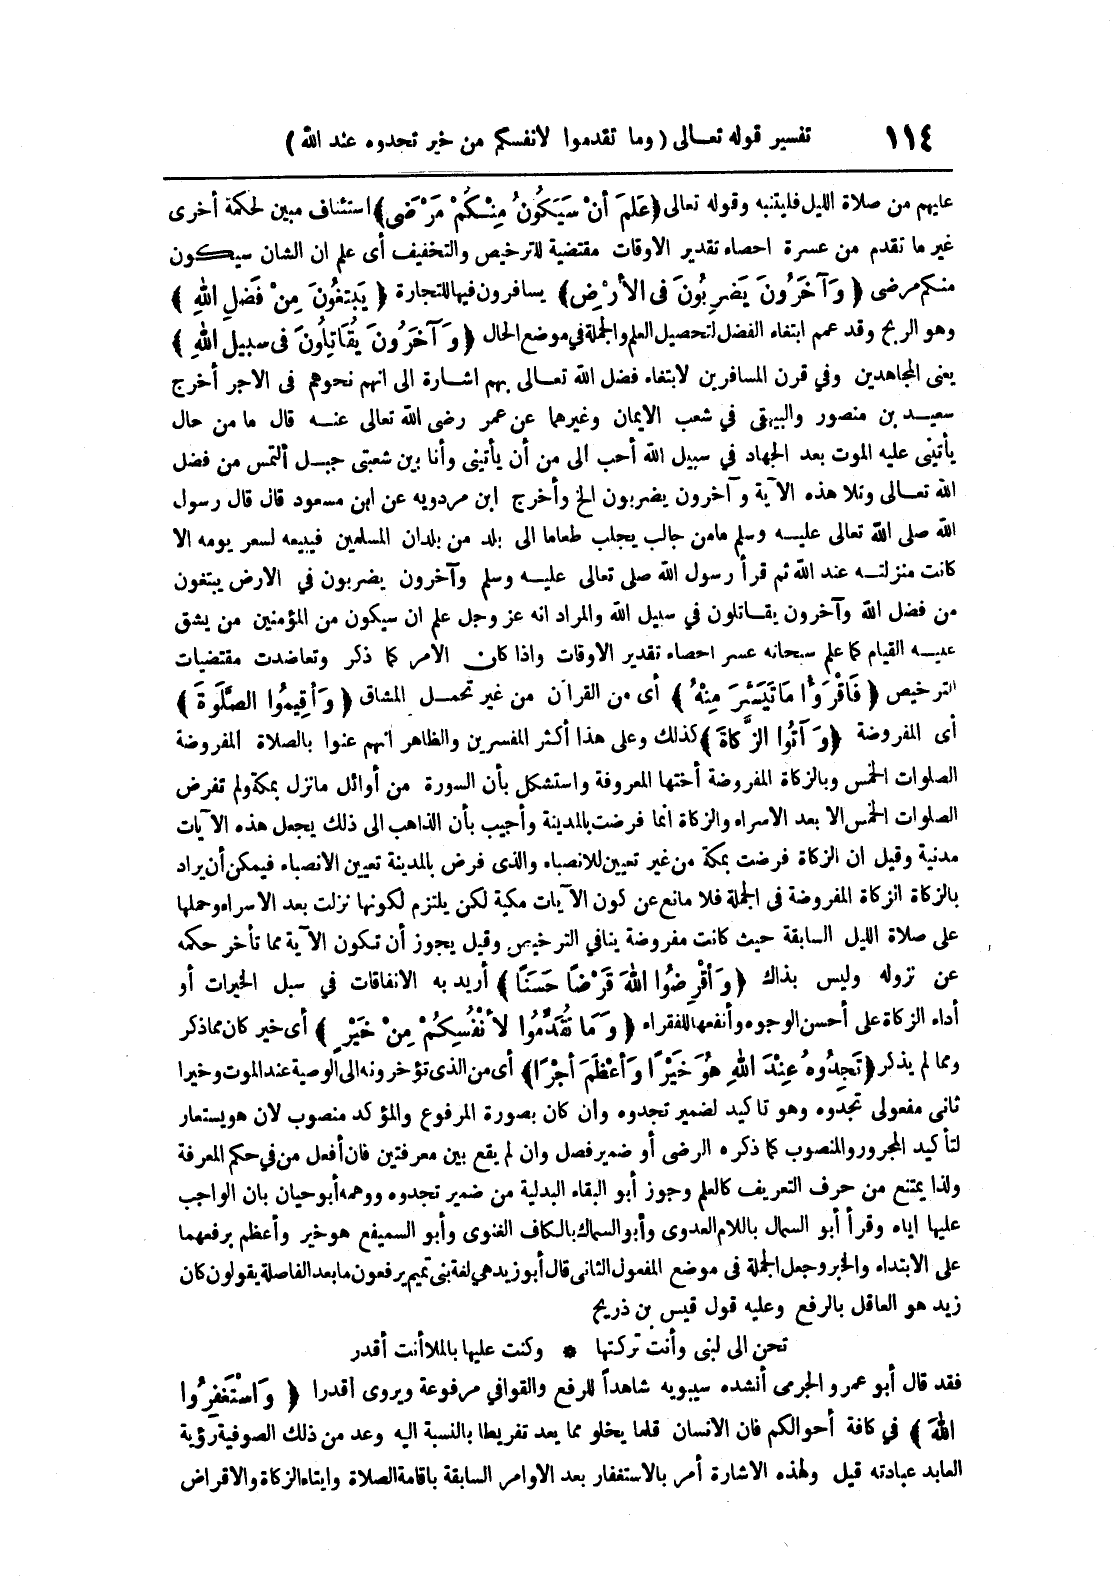 ١١٤ تفسير قوله تعالى ( وما تقدموا لانفسكم من خير تجدوه عند الله )
عليهم من صلاة الليل فليتنبه وقوله تعالى ﴿عَلِمَ أَنْ سَيَكُونُ مِنْكُمْ مَرْضَى﴾ استئناف مبين لحكمة أخرى
غير ما تقدم من عسرة احصاء تقدير الأوقات مقتضية للترخيص والتخفيف أى علم ان الشان سيكون
منكم مرضى ﴿ وَآخَرُونَ يَضْرِبُونَ فِى الأَرْضِ﴾ يسافرون فيها للتجارة ﴿ يَبْتَغُونَ مِنْ فَضْلِ اللهِ ﴾
وهو الربح وقد عمم ابتغاء الفضل لتحصيل العلم والجملة في موضع الحال ﴿ وَآخَرُونَ يُقَاتِلُونَ فى سبيل اللهِ ﴾
يعنى المجاهدين وفي قرن المسافرين لابتغاء فضل الله تعالى بهم اشارة الى انهم نحوهم فى الاجر أخرج
سعيد بن منصور والبيهقى في شعب الايمان وغيرهما عن عمر رضى الله تعالى عنه قال ما من حال
يأتينى عليه الموت بعد الجهاد في سبيل الله أحب الى من أن يأتينى وأنا بين شعبتى جبل ألتمس من فضل
الله تعالى وتلا هذه الآية وآخرون يضربون الخ وأخرج ابن مردويه عن ابن مسعود قال قال رسول
الله صلى الله تعالى عليه وسلم مامن جالب يجلب طعاما الى بلد من بلدان المسلمين فيبيعه لسعر يومه الا
كانت منزلته عند الله ثم قرأ رسول الله صلى تعالى عليه وسلم وآخرون يضربون في الارض يبتغون
من فضل الله وآخرون يقاتلون في سبيل الله والمراد انه عز وجل علم ان سيكون من المؤمنين من يشق
عليه القيام كما علم سبحانه عسر احصاء تقدير الأوقات واذا كان الامر كما ذكر وتعاضدت مقتضيات
الترخيص ﴿ فَاقْرَؤُا مَا تَيَسَّرَ مِنْهُ ﴾ أى من القرآن من غير تحمل المشاق ﴿ وَأَقِيمُوا الصَّلَوةَ ﴾
أى المفروضة ﴿وَ آتُوا الزَّكَاةَ﴾ كذلك وعلى هذا أكثر المفسرين والظاهر أنهم عنوا بالصلاة المفروضة
الصلوات الخمس وبالزكاة المفروضة أختها المعروفة واستشكل بأن السورة من أوائل مانزل بمكة ولم تفرض
الصلوات الخمس الا بعد الاسراء والزكاة انما فرضت بالمدينة وأجيب بأن الذاهب الى ذلك يجعل هذه الآيات
مدنية وقيل ان الزكاة فرضت بمكة من غير تعيين للانصباء والذى فرض بالمدينة تعيين الانصباء فيمكن أن يراد
بالزكاة الزكاة المفروضة فى الجملة فلا مانع عن كون الآيات مكية لكن يلتزم لكونها نزلت بعد الاسراء وحملها
على صلاة الليل السابقة حيث كانت مفروضة ينافي الترخيص وقيل يجوز أن تكون الآية مما تأخر حكمه
عن نزوله وليس بذاك ﴿ وَأَقْرِضُوا اللهَ قَرْضًا حَسَنًا ﴾ أريد به الانفاقات في سبل الخيرات أو
أداء الزكاة على أحسن الوجوه وأنفعها للفقراء ﴿ وَمَا تُقَدِّمُوا لأَنْفُسِكُمْ مِنْ خَيْرٍ ﴾ أى خير كان مما ذكر
ومما لم يذكر ﴿تَجِدُوهُ عِنْدَ اللهِ هُوَ خَيْرًا وَأَعْظَمَ أَجْرًا﴾ أى من الذى تؤخرونه الى الوصية عند الموت وخيرا
ثانى مفعولى تجدوه وهو تاكيد لضمير تجدوه وان كان بصورة المرفوع والمؤكد منصوب لان هو يستعار
لتأكيد المجرور والمنصوب كما ذكره الرضى أو ضمير فصل وان لم يقع بين معرفتين فان أفعل من في حكم المعرفة
ولذا يمتنع من حرف التعريف كالعلم وجوز أبو البقاء البدلية من ضمير تجدوه ووهمه أبو حيان بان الواجب
عليها اياه وقرأ أبو السمال باللام العدوى وأبو السماك بالكاف الغنوى وأبو السميفع هو خير وأعظم برفعهما
على الابتداء والخبر وجعل الجملة فى موضع المفعول الثانى قال أبو زيد هي لغة بنى تميم يرفعون ما بعد الفاصلة يقولون كان
زيد هو العاقل بالرفع وعليه قول قيس بن ذريح
تحن الى لبنى وأنت تركتها * وكنت عليها بالملا أنت أقدر
فقد قال أبو عمرو الجرمى أنشده سيبويه شاهداً للرفع والقوافي مرفوعة ويروى أقدرا ﴿ وَاسْتَغْفِرُوا
اللهَ ﴾ في كافة أحوالكم فان الانسان قلما يخلو مما يعد تفريطا بالنسبة اليه وعد من ذلك الصوفية رؤية
العابد عبادته قيل ولهذه الاشارة أمر بالاستغفار بعد الاوامر السابقة باقامة الصلاة وايتاء الزكاة والاقراض